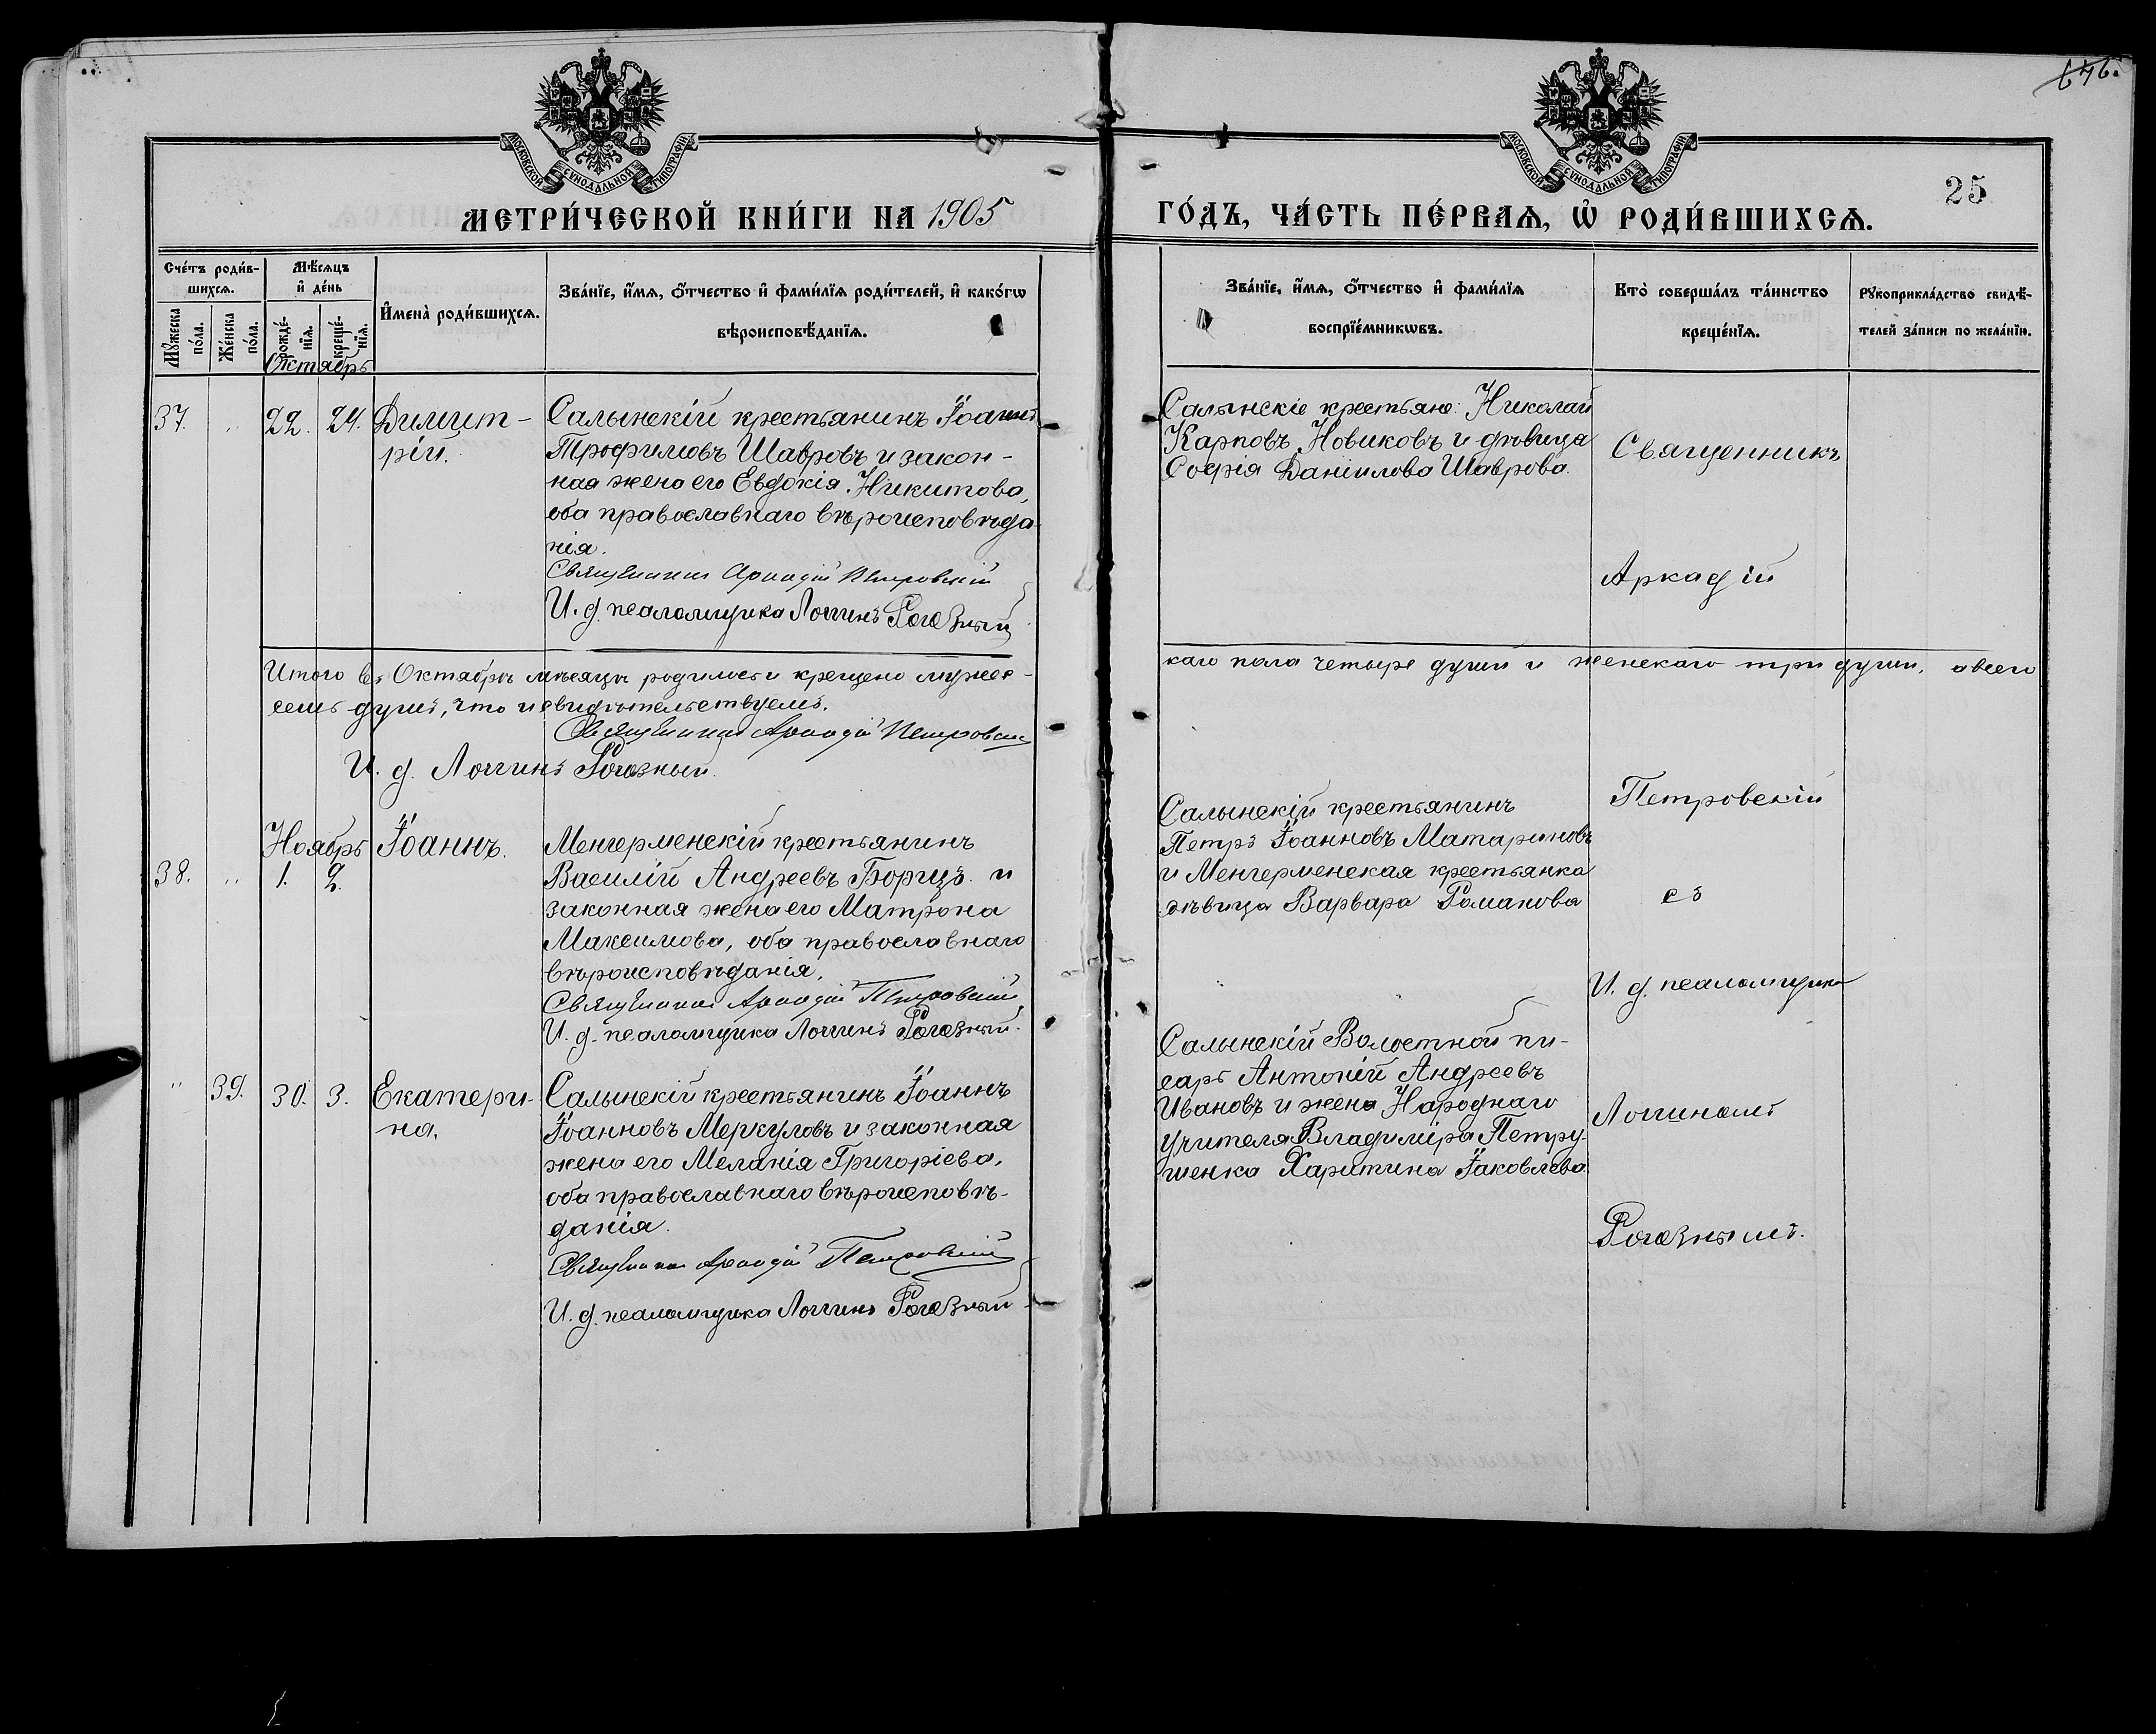 646.
МОСКОВСКОЙ СѴНОДАЛЬНОЙ ТИПОГРАФІИ
МОСКОВСКОЙ СѴНОДАЛЬНОЙ ТИПОГРАФІИ
25
МЕТРИ́ЧЕСКОЙ КНИ́ГИ НА 1905
ГО́ДЪ, ЧА́СТЬ ПЕ́РВАѦ, Ѡ҆ РОДИ́ВШИХСѦ.
Сче́тъ роди́в-
шихсѧ.
Мꙋ́жеска по́ла.
Же́нска по́ла.
Мѣ́сѧцъ
и҆ де́нь
рожде́-
нїѧ.
креще́-
нїѧ.
И҆мена̀ роди́вшихсѧ.
Зва́нїе, и҆́мѧ, ѻ҆́тчество и҆ фами́лїѧ роди́телей, и҆ како́гѡ
вѣроисповѣ́данїѧ.
Зва́нїе, и҆́мѧ, ѻ҆́тчество и҆ фами́лїѧ
воспрїе́мникѡвъ.
Кто̀ соверша́лъ та́инство
креще́нїѧ.
Рꙋкоприкла́дство свидѣ́-
телей за́писи по жела́нїю.
Октябрь
37. " 22. 24. Димит-
рій.
Салынскій крестьянинъ Іоаннъ
Трофимовъ Шавровъ и закон-
ная жена его Евдокія Никитова,
оба православнаго вѣроисповѣда
нія.
Священникъ Аркадій Петровскій
И. д. псаломщика Логгинъ Рогозный
Салынскіе крестьяне: Николай
Карповъ Новиковъ и дѣвица
Софія Даніилова Шаврова.
Священникъ
Аркадій
Итого въ Октябрѣ мѣсяцѣ родилось и крещено мужес-
каго пола четыре души и женскаго три души, а всего
семь душъ, что и свидѣтельствуемъ.
Священникъ Аркадій Петровскій
И. д. Логгинъ Рогозный.
Петровскій
Ноябрь
38. " 1. 2. Іоаннъ.
Менгерменскій крестьянинъ
Василій Андреевъ Борцъ и
законная жена его Матрона
Максимова, оба православнаго
вѣроисповѣданія.
Священникъ Аркадій Петровскій
И. д. псаломщика Логгинъ Рогозный.
Салынскій крестьянинъ
Петръ Іоанновъ Матариновъ
и Менгерменская крестьянка
дѣвица Варвара Романова
съ
И. д. псаломщика
" 39. 30. 3. Екатери-
на.
Салынскій крестьянинъ Іоаннъ
Іоанновъ Меркуловъ и законная
жена его Меланія Григоріева,
оба православнаго вѣроисповѣ-
данія.
Священникъ Аркадій Петровскій
И. д. псаломщика Логгинъ Рогозный
Салынскій Волостной пи-
сарь Антоній Андреевъ
Ивановъ и жена Народнаго
учителя Владиміра Петру-
шенка Харитина Іаковлева
Логгиномъ
Рогознымъ.